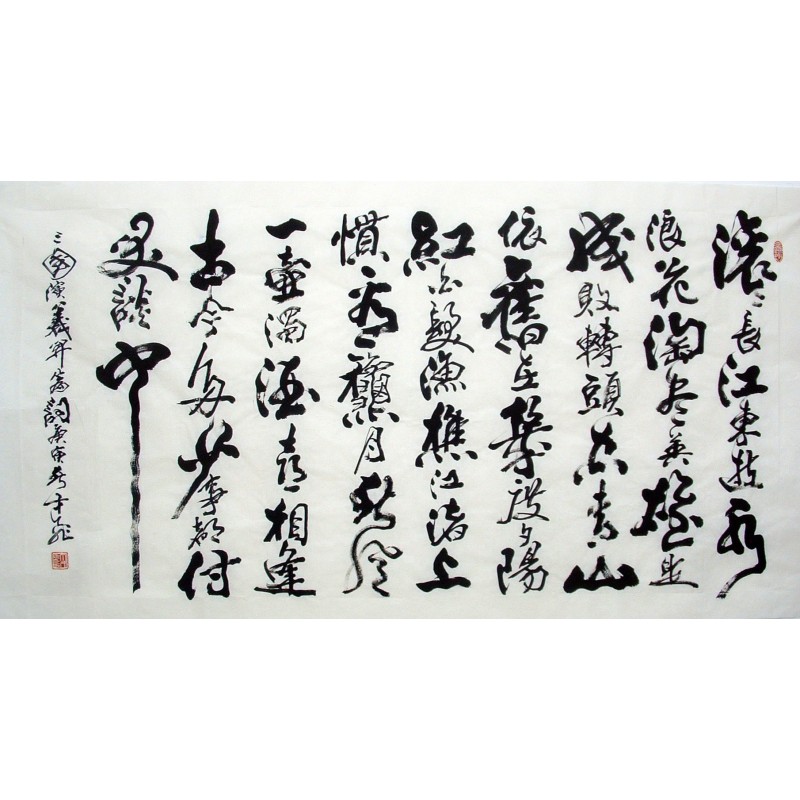 滚〻長江東逝水
浪花淘尽英雄是
成敗轉頭空青山
依舊在幾度夕陽
紅白髮漁樵江渚上
慣看龝月春風
一壺濁酒喜相逢
古今多少事都付
笑談中
三國演義開篇詞庚